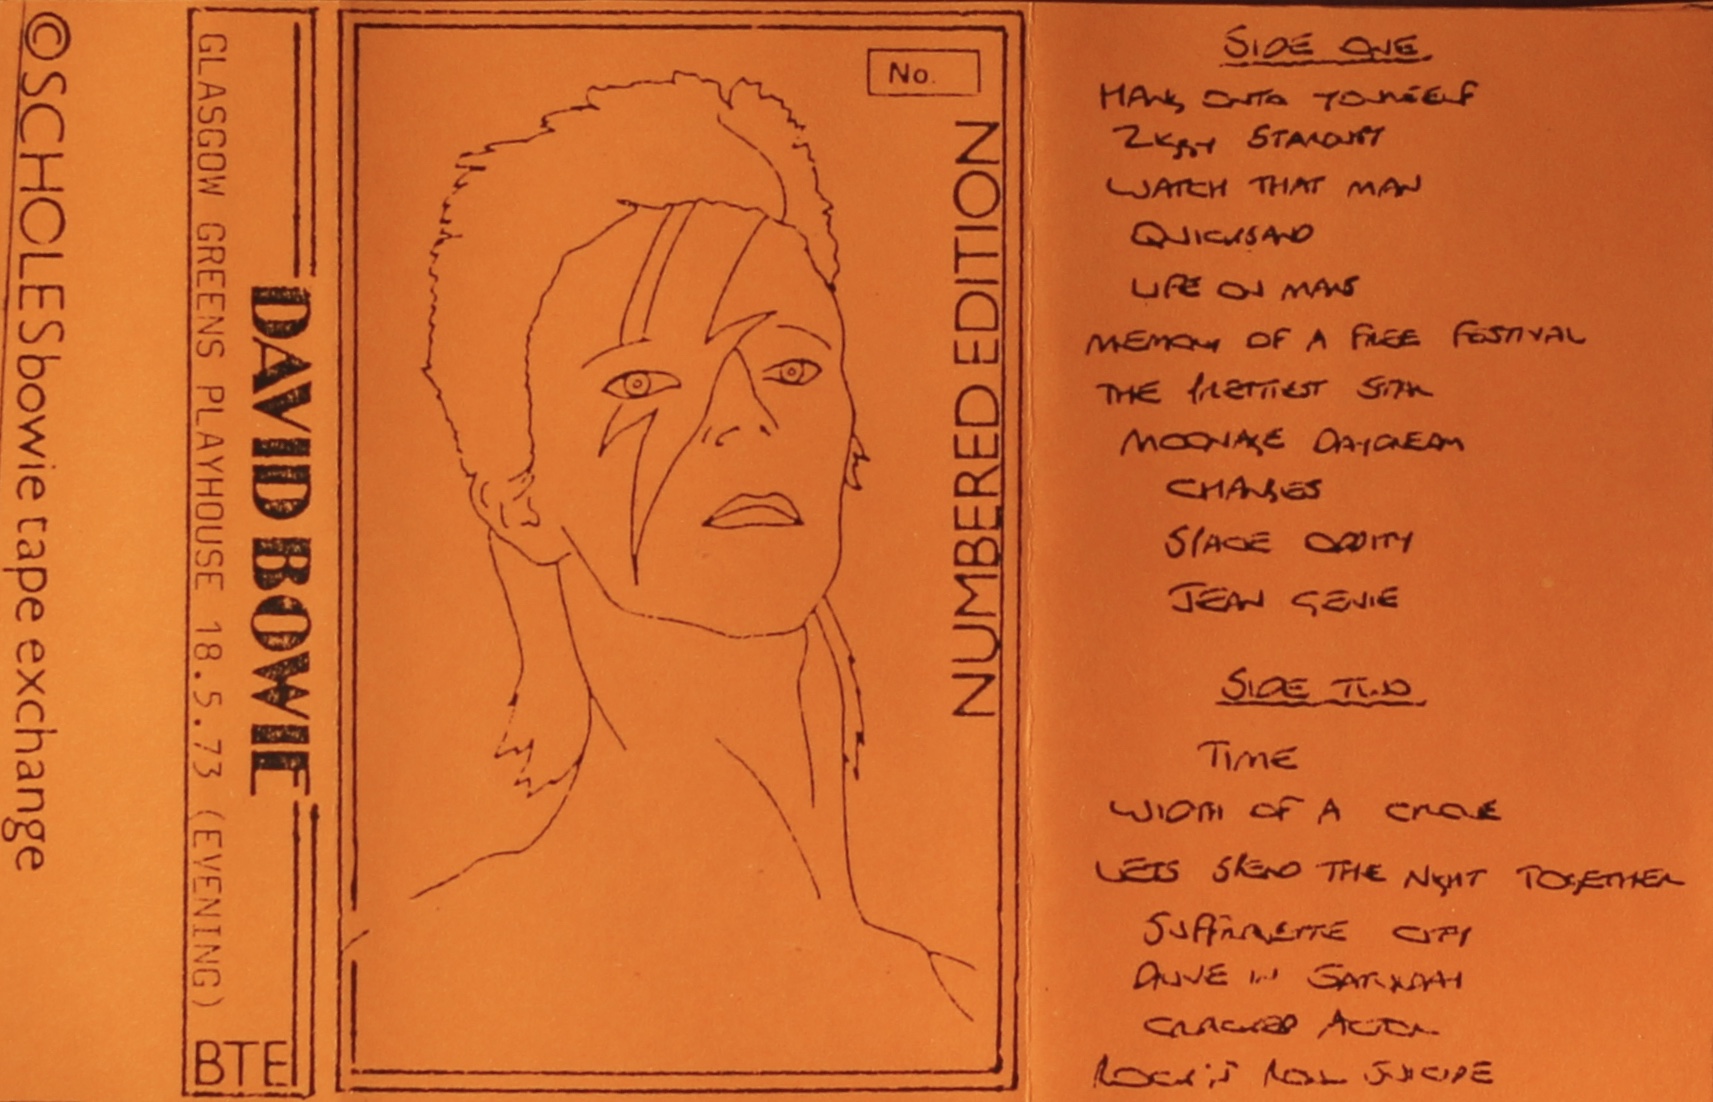 © SCHOLES bowie tape exchange
GLASGOW GREENS PLAYHOUSE 18.5.73 (EVENING)
DAVID BOWIE
BTE
No.
NUMBERED EDITION
SIDE ONE
HANG ONTO YOURSELF
ZIGGY STARDUST
WATCH THAT MAN
QUICKSAND
LIFE ON MARS
MEMORY OF A FREE FESTIVAL
THE PRETTIEST STAR
MOONAGE DAYDREAM
CHANGES
SPACE ODDITY
JEAN GENIE
SIDE TWO
TIME
WIDTH OF A CIRCLE
LETS SPEND THE NIGHT TOGETHER
SUFFRAGETTE CITY
DRIVE IN SATURDAY
CRACKED ACTOR
ROCK 'N' ROLL SUICIDE